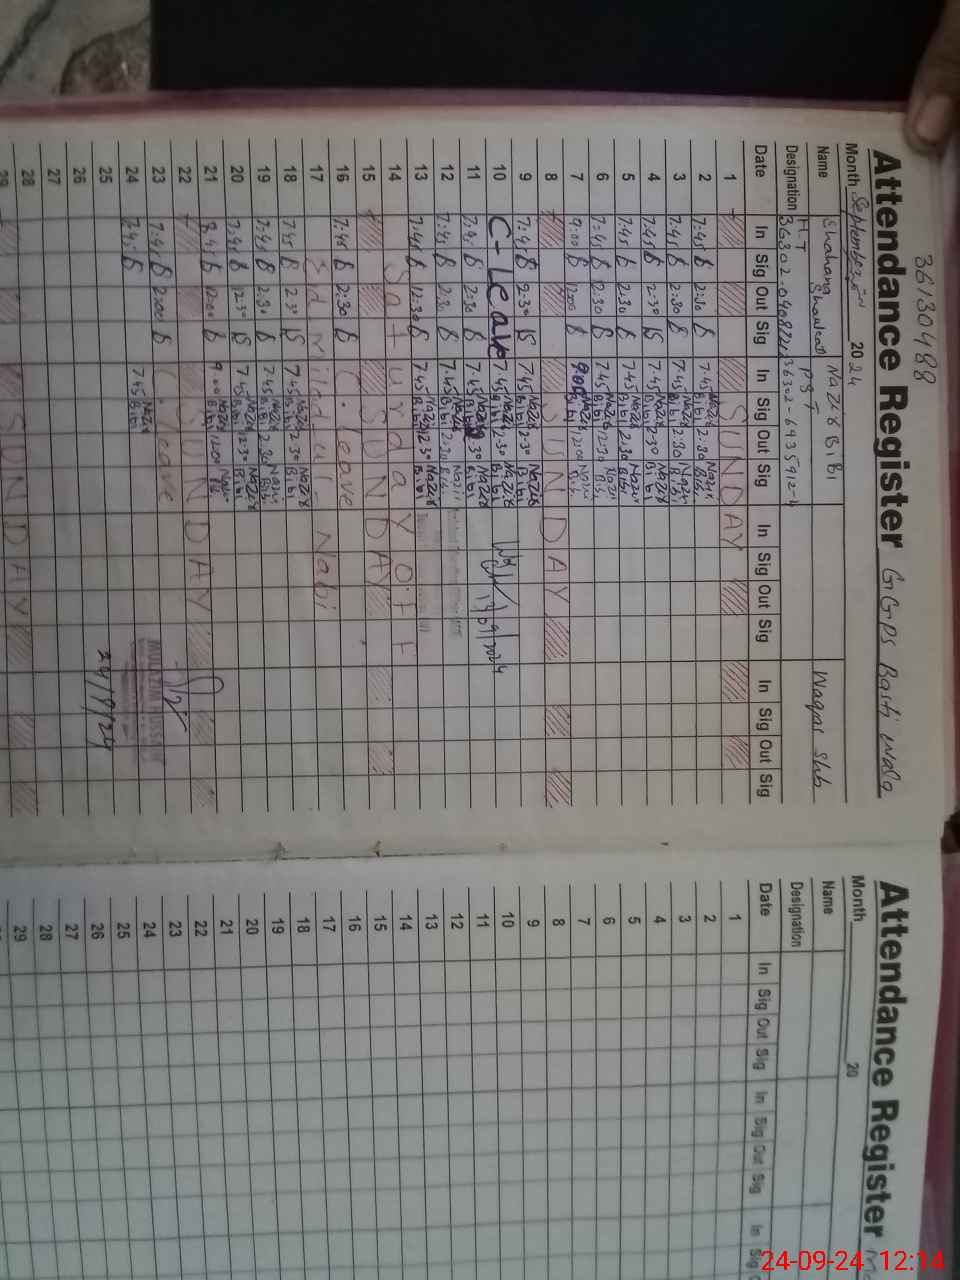 36130488
Attendance Register GGPS Basti Wala
Month September 2024
Name Shahana Shaukat Nazir BiBi Waqar Shb
Designation H.T PST
Date In Sig Out Sig In Sig Out Sig In Sig Out Sig In Sig Out Sig
1 SUNDAY
2 7:45 B 2:30 B 7:45 Nazir Bibi 2:30 Nazir Bibi
3 7:45 B 2:30 B 7:45 Nazir Bibi 2:30 Nazir Bibi
4 7:45 B 2:30 B 7:45 Nazir Bibi 2:30 Nazir Bibi
5 7:45 B 2:30 B 7:45 Nazir Bibi 2:30 Nazir Bibi
6 7:45 B 2:30 B 7:45 Nazir Bibi 12:30 Nazir Bibi
7 9:00 B 12:00 B 9:00 Nazir Bibi 12:00 Nazir Bibi
8 SUNDAY
9 7:45 B 2:30 B 7:45 Nazir Bibi 2:30 Nazir Bibi
10 C-Leave 7:45 Nazir Bibi 2:30 Nazir Bibi 13/09/2024
11 7:45 B 2:30 B 7:45 Nazir Bibi 2:30 Nazir Bibi
12 7:45 B 2:30 B 7:45 Nazir Bibi 2:30 Nazir Bibi
13 7:45 B 12:30 B 7:45 Nazir Bibi 12:30 Nazir Bibi
14 Saturday OFF
15 SUNDAY
16 7:45 B 2:30 B C.leave
17 Eid milad ul-Nabi
18 7:45 B 2:30 B 7:45 Nazir Bibi 2:30 Nazir Bibi
19 7:45 B 2:30 B 7:45 Nazir Bibi 2:30 Nazir Bibi
20 7:45 B 12:30 B 7:45 Nazir Bibi 12:30 Nazir Bibi
21 8:45 B 12:00 B 9:00 Nazir Bibi 12:00 Nazir Bibi
22 SUNDAY
23 7:45 B 2:00 B C.leave
24 7:45 B 7:45 Nazir Bibi MULAZIM HUSSAIN
25 24/9/24
26
27
28
29 SUNDAY
Attendance Register
Month 20
Name
Designation
Date In Sig Out Sig In Sig Out Sig In Sig
1
2
3
4
5
6
7
8
9
10
11
12
13
14
15
16
17
18
19
20
21
22
23
24
25
26
27
28
29
24-09-24 12:14